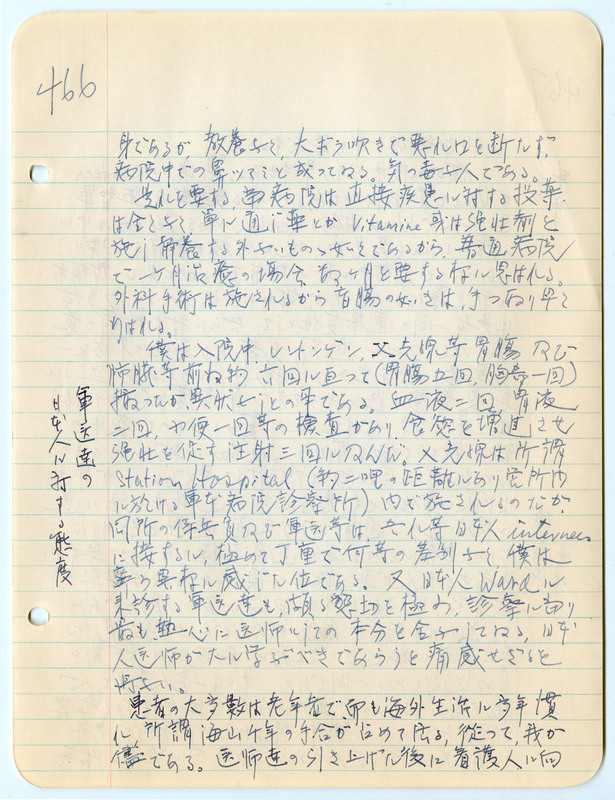 466
身であるが、放卷なく、大ボラ吹きで悪れ口を断たず、
病院中での鼻ツマミと成ってゐる。気の毒な人である。
是れを要する、当病院は直接疾患に対する投薬
は全くなく、単に通じ薬とか Vitamine 或は強壮剤を
施し静養する外ないものゝ如くであるから、普通病院
で一ヶ月治療の場合、ヶ月を要する様に思はれる。
外科手術は施されるから盲腸の如きは、手つ取り早く
行はれる。
僕は入院中、レントゲン、X光線等胃腸及び
肺臓等前後約六回に亘って(胃腸五回、胸部一回)
撮ったが、異状なしとの事である。血液二回、胃液
二回、や便一回等の検査があり、食慾を増進させ
強壮を促す注射三回に及んだ。X光線は所謂
Station Hospital (約二哩の距離にあり営所内
に於ける軍本病院診察所) 内で施されるのだが
同所の係兵員及び軍医等は、吾れ等日本人 internees
に接するに、極めて丁重で何等の差別なく僕は
寧ろ異様に感じた位である。又日本人 Ward に
来診する軍医達も、頗る懇切を極め、診察に当り
最も熱心に医師としての本分を全ふしてゐる、日本
人医師が大に学ぶべきであらうと痛感せざるを
得ない。
患者の大多数は老年者で、而も海外生活に多年慣
れ、所謂海山千年の手合が占めて居る、従って、我が
儘である。医師達の引き上げた後に看護人に向
軍医達の
日本人に対する態度